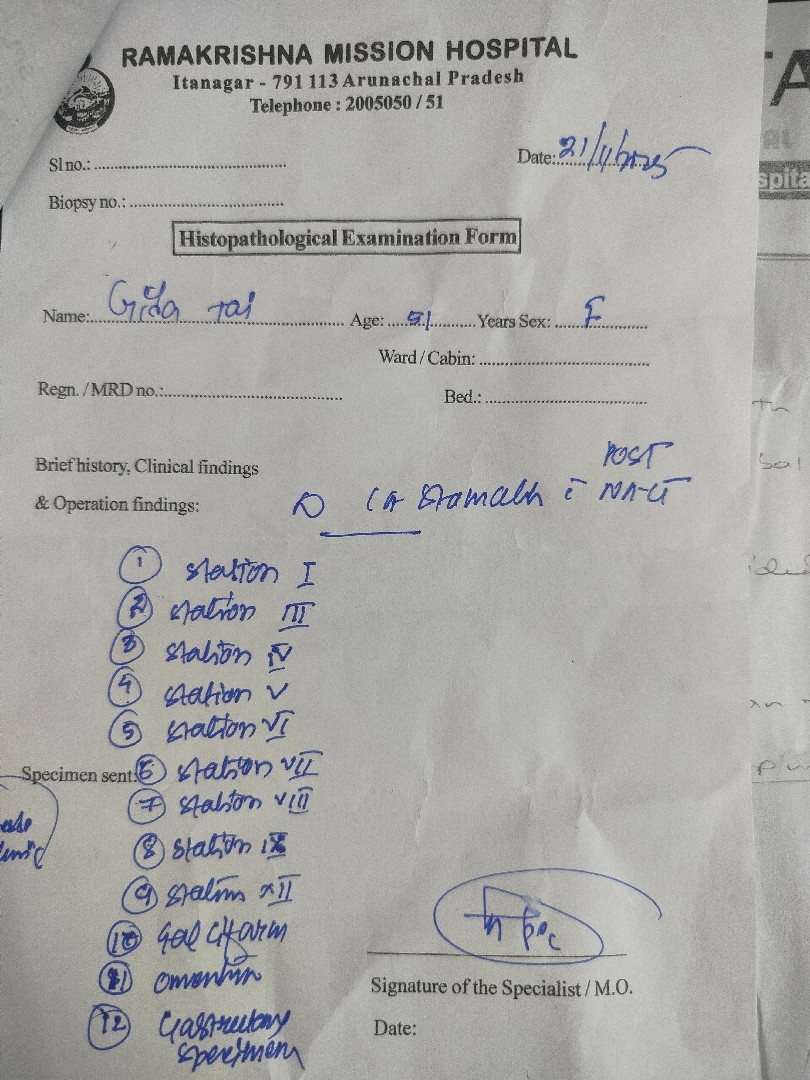 RAMAKRISHNA MISSION HOSPITAL
Itanagar - 791 113 Arunachal Pradesh
Telephone : 2005050 / 51
Sl no.:
Date: 21/4/2025
Biopsy no.:
Histopathological Examination Form
Name: Gida Tai Age: 51 Years Sex: F
Ward / Cabin:
Regn. / MRD no.:
Bed.:
Brief history, Clinical findings
POST
& Operation findings: Ca Stomach c NACT
1 Station I
2 Station III
3 Station IV
4 Station V
5 Station VI
Specimen sent: 6 Station VII
7 Station VIII
8 Station IX
9 Station XII
10
11 Omentum
12 Gastrectomy
Specimen
Signature of the Specialist / M.O.
Date: